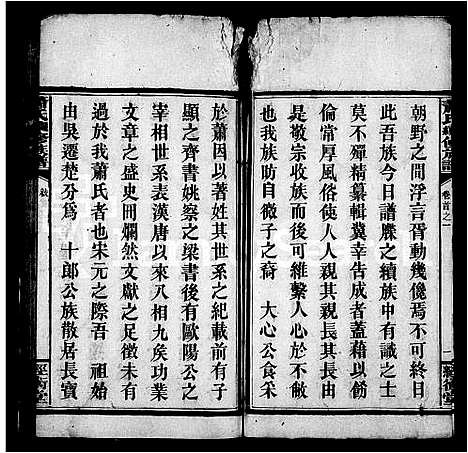 朝野之間浮言胥動幾儳焉不可終日
此吾族今日譜牒之續族中有識之士
莫不殫精纂輯冀幸告成者蓋藉以飭
倫常厚風俗使人人親其親長其長由
是敬宗收族而後可維繫人心於不敝
也我族防自微子之裔 大心公食采
於蕭因以著姓其世系之紀載前有子
顯之齊書姚察之梁書後有歐陽公之
宰相世系表漢唐以來八相九矦功業
文章之盛史冊爛然文獻之足徵未有
過於我蕭氏者也宋元之際吾 祖始
由吳遷楚分為 十郎公族散居長寶
卷首之一
一
敘
經術堂